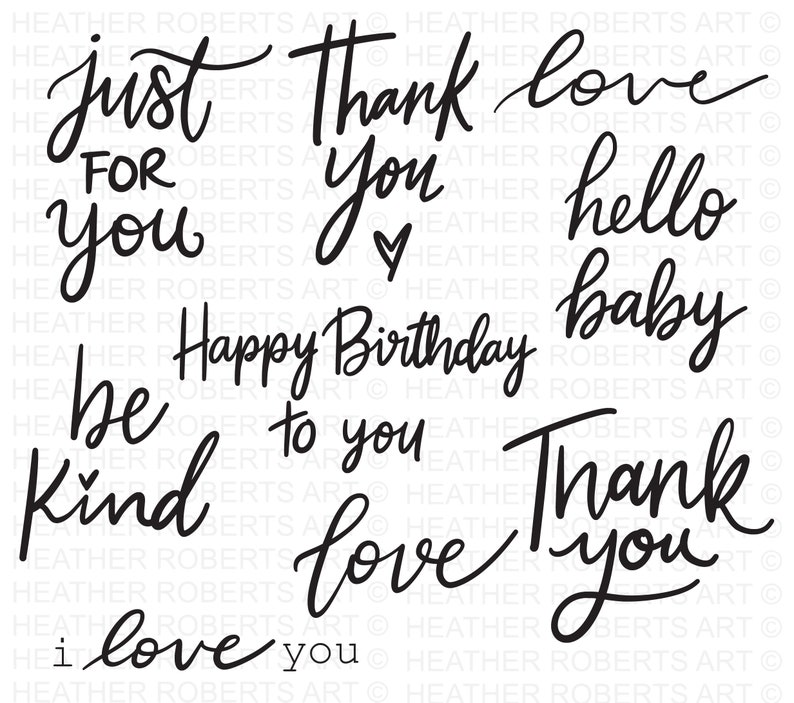 just
FOR
you
Thank
you
love
hello
baby
Happy Birthday
to you
be
kind
Thank
you
love
i love you
HEATHER ROBERTS ART ©